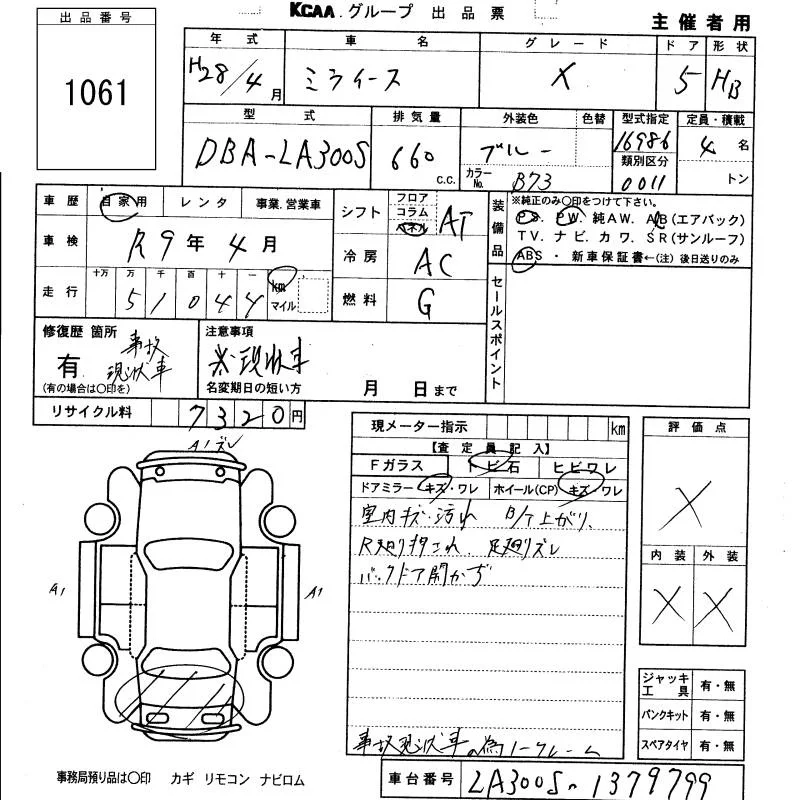 KCAA.グループ 出品票
主催者用
出品番号
1061
年式 車名 グレード ドア 形状
H28/4月 ミライース X 5 HB
型式 排気量 外装色 色替 型式指定 定員・積載
DBA-LA300S 660 c.c. ブルー 16986 4名
カラーNo. B73 類別区分 0011 トン
車歴 自家用 レンタ 事業.営業車
車検 R9年4月
走行 十万 万 千 百 十 一 km マイル
51044
シフト フロア コラム パネル AT
冷房 AC
燃料 G
装備品
※純正のみ○印をつけて下さい。
PS. PW. 純AW. AB(エアバック)
TV. ナビ. カワ. SR(サンルーフ)
ABS ・ 新車保証書←(注) 後日送りのみ
セールスポイント
修復歴 箇所 事故現状車
有
(有の場合は○印を)
注意事項
※現状車
名変期日の短い方 月 日まで
リサイクル料 7320円
現メーター指示 km
【査定員記入】
Fガラス トビ石 ヒビワレ
ドアミラー キズ・ワレ ホイール(CP) キズ・ワレ
室内キズ・汚れ B/T上がり、
R廻りサこれ 足廻りズレ
バックドア開かず
事故現状車の為ノークレーム
評価点
X
内装 外装
X X
A1ズレ
A1 A1
ジャッキ工具 有・無
パンクキット 有・無
スペアタイヤ 有・無
事務局預り品は○印 カギ リモコン ナビロム
車台番号 LA300S-1379799